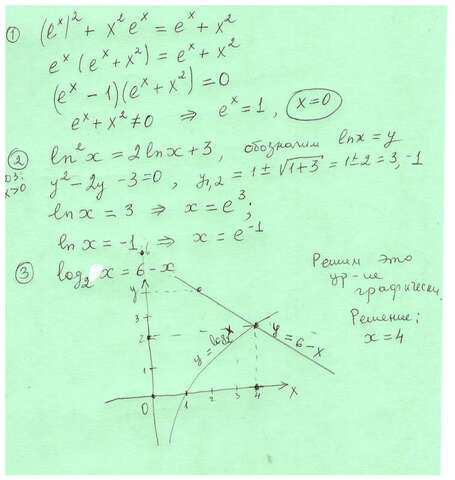 ① (eˣ)² + x²eˣ = eˣ + x²
eˣ (eˣ + x²) = eˣ + x²
(eˣ − 1)(eˣ + x²) = 0
eˣ + x² ≠ 0 ⇒ eˣ = 1, x = 0
② ln²x = 2 lnx + 3, обозначим lnx = y
ОЗ: x>0 y² − 2y − 3 = 0, y₁,₂ = 1 ± √1+3 = 1 ± 2 = 3, −1
lnx = 3 ⇒ x = e³;
lnx = −1 ⇒ x = e⁻¹
③ log₂ x = 6 − x
Решим это
ур-ие
графически.
Решение:
x = 4
6
y
3
2
1
y = log₂x
y = 6 − x
0 1 2 3 4 x